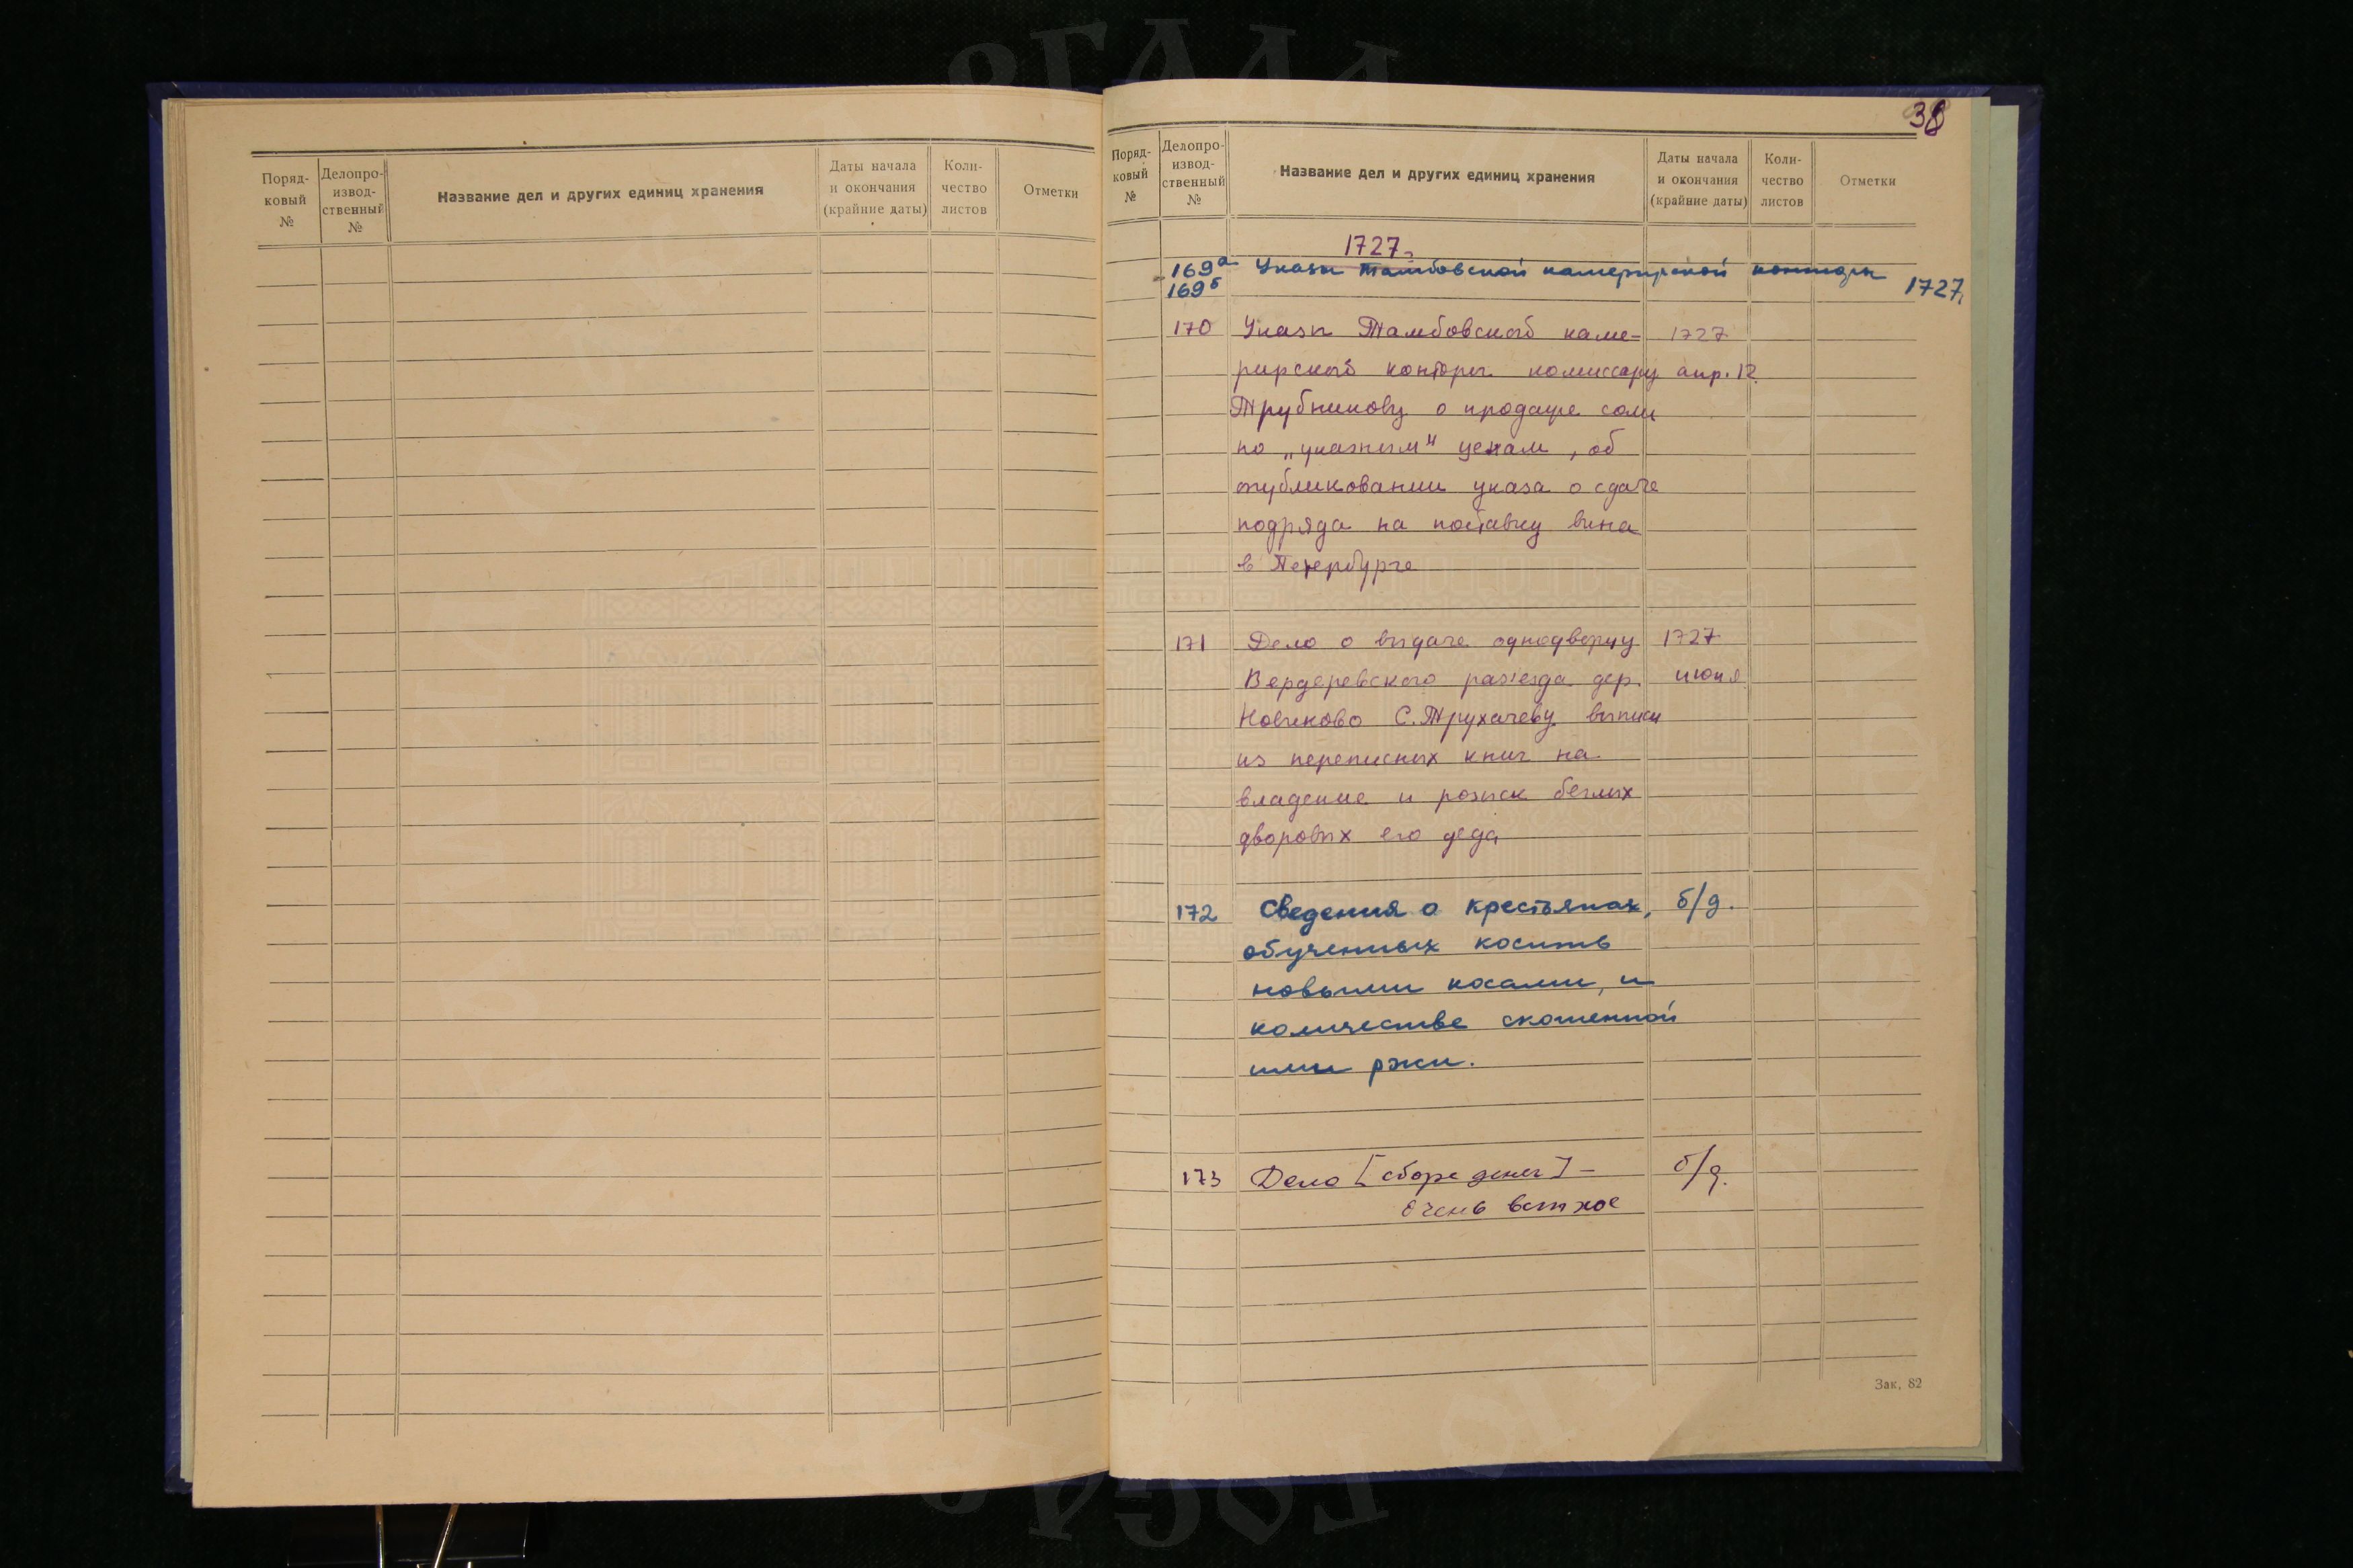 Поряд-
ковый
№
Делопро-
извод-
ственный
№
Название дел и других единиц хранения
Даты начала
и окончания
(крайние даты)
Коли-
чество
листов
Отметки
38
Поряд-
ковый
№
Делопро-
извод-
ственный
№
Название дел и других единиц хранения
Даты начала
и окончания
(крайние даты)
Коли-
чество
листов
Отметки
1727г.
169а Указы Тамбовской камерирской конторы
169б 1727г
170 Указы Тамбовской каме- 1727
рирской конторы комиссару апр. 12
Трубникову о продаже соли
по „указным" ценам, об
опубликовании указа о сдаче
подряда на поставку вина
в Петербурге
171 Дело о выдаче однодворцу 1727
Вердеревского раз'езда дер. июня
Новиково С. Трухачеву выписи
из переписных книг на
владение и розыск беглых
дворовых его деда
172 Сведения о крестьянах, б/д.
обученных косить
новыми косами, и
количестве скошенной
ими ржи.
173 Дело [сборе денег] – б/д.
очень ветхое
Зак. 82